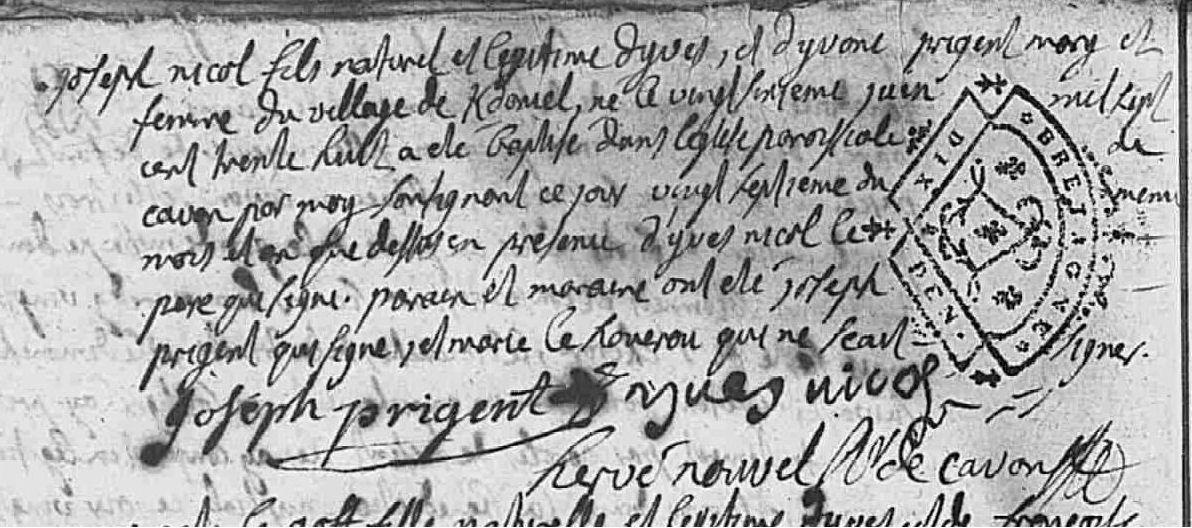 joseph nicol fils naturel et legitime d'yves, et d'yvone prigent mary et
femme du village de K, ne le vingt sixieme juin mil sept
cent trente huit a ete baptise dans leglise paroissiale de
cavan par moy soussignant ce jour vingt septieme du meme
mois et an que dessus en presence d'yves nicol le
pere qui signe. parain et maraine ont ete joseph
prigent qui signe, et marie le qui ne scait signer.
joseph prigent yves nicol
hervé nouvel de cavan
le goff fille naturelle et legitime d'yves et de françoise
BRETAGNE
DEN.
DIX